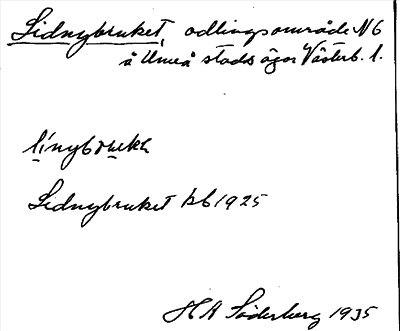 Lidnybruket, odlingsområde N6
å Umeå stads ägor Västerb. l.
línybrukh
Lidnybruket kb 1925
H A Söderberg 1935